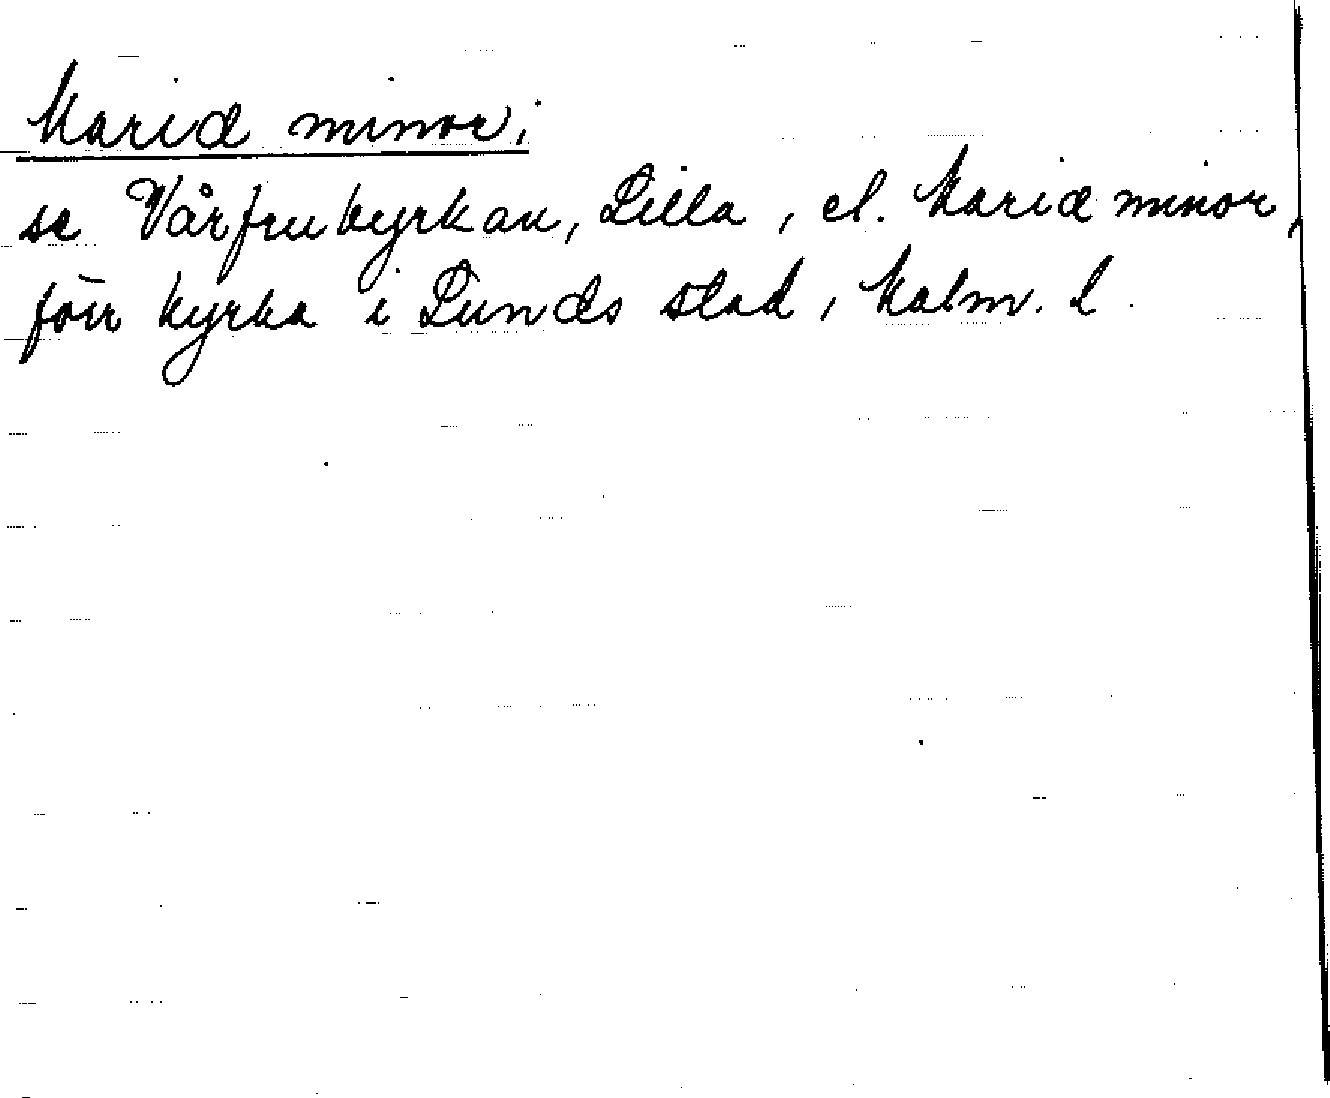 Mariæ minor;
se Vårfrukyrkan, Lilla, el. Mariæ minor,
förr kyrka i Lunds stad, Malm. l.